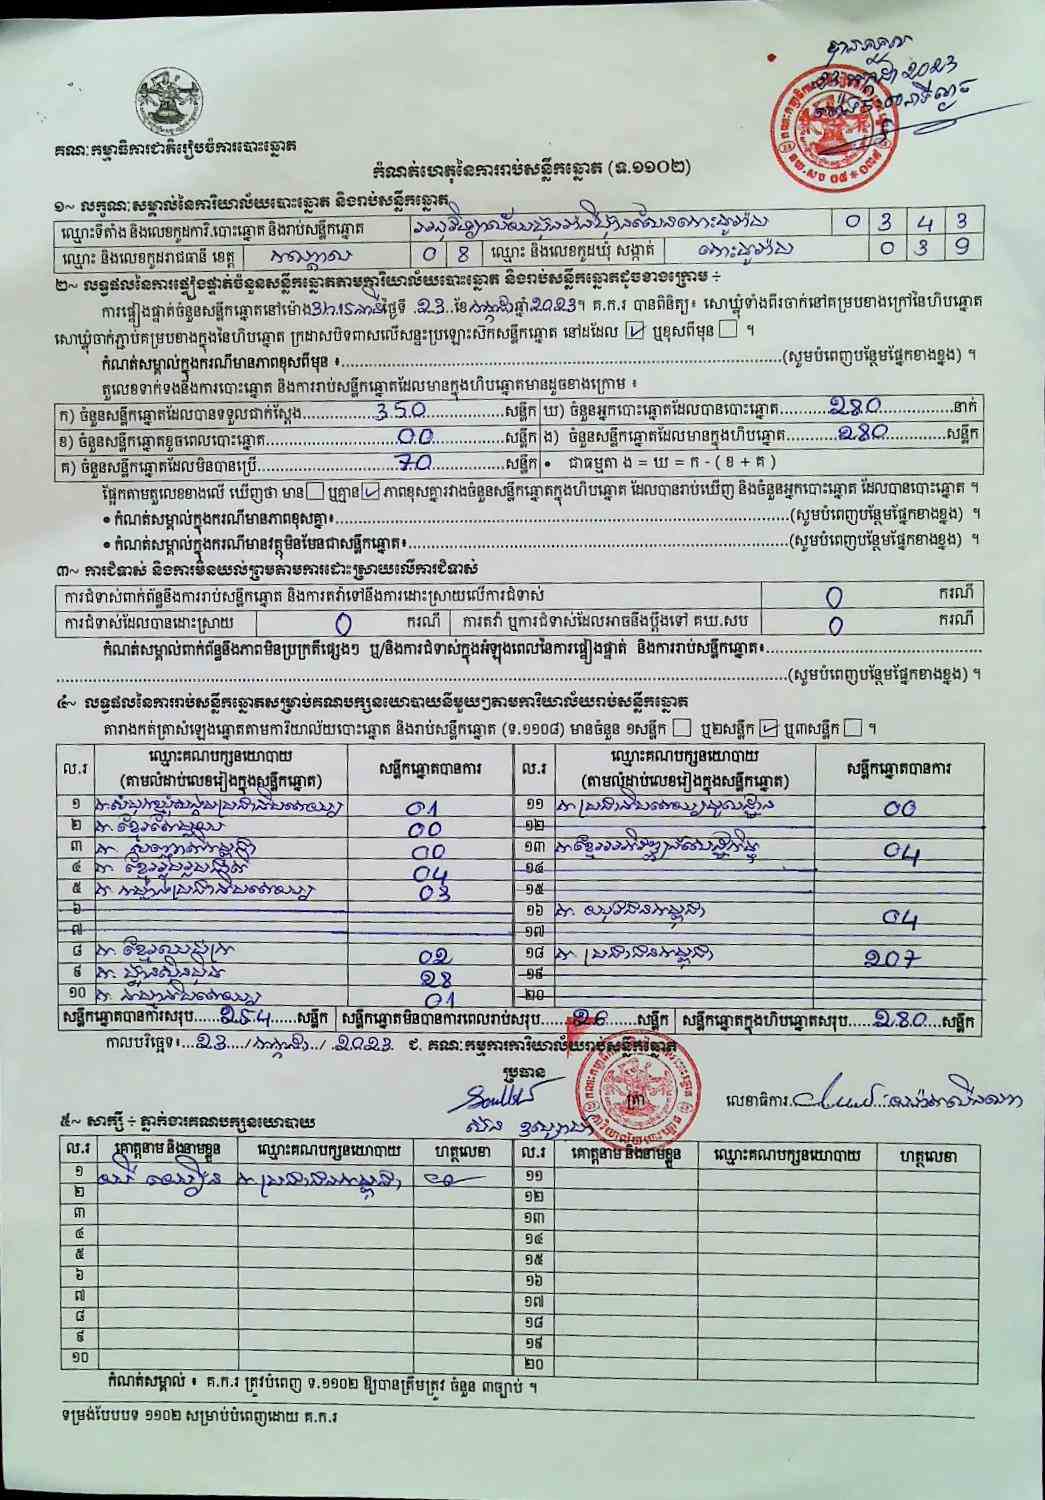 បានឃើញ
23 កក្កដា 2023
គណៈកម្មាធិការជាតិរៀបចំការបោះឆ្នោត
កំណត់ហេតុនៃការរាប់សន្លឹកឆ្នោត (ទ.១១០២)
១~ លក្ខណៈសម្គាល់នៃការិយាល័យបោះឆ្នោត និងរាប់សន្លឹកឆ្នោត
ឈ្មោះទីតាំង និងលេខកូដការិ.បោះឆ្នោត និងរាប់សន្លឹកឆ្នោត 0 3 4 3
ឈ្មោះ និងលេខកូដរាជធានី ខេត្ត កណ្តាល 0 8 ឈ្មោះ និងលេខកូដឃុំ សង្កាត់ 0 3 9
២~ លទ្ធផលនៃការផ្ទៀងផ្ទាត់ចំនួនសន្លឹកឆ្នោតតាមការិយាល័យបោះឆ្នោត និងរាប់សន្លឹកឆ្នោតដូចខាងក្រោម ÷
ការផ្ទៀងផ្ទាត់ចំនួនសន្លឹកឆ្នោតនៅម៉ោង 3h15នាទី ថ្ងៃទី 23 ខែ កក្កដា ឆ្នាំ 2023។ គ.ក.រ បានពិនិត្យ៖ សោឃ្លុំទាំងពីរចាក់នៅគម្របខាងក្រៅនៃហិបឆ្នោត
សោឃ្លុំចាក់ភ្ជាប់គម្របខាងក្នុងនៃហិបឆ្នោត ក្រដាសបិទពាសលើសន្ទះប្រឡោះស៊កសន្លឹកឆ្នោត នៅដដែល ☑ ឬខុសពីមុន ☐ ។
កំណត់សម្គាល់ក្នុងករណីមានភាពខុសពីមុន ៖......(សូមបំពេញបន្ថែមផ្នែកខាងខ្នង) ។
តួលេខទាក់ទងនឹងការបោះឆ្នោត និងការរាប់សន្លឹកឆ្នោតដែលមានក្នុងហិបឆ្នោតមានដូចខាងក្រោម ៖
ក) ចំនួនសន្លឹកឆ្នោតដែលបានទទួលជាក់ស្តែង 350 សន្លឹក ឃ) ចំនួនអ្នកបោះឆ្នោតដែលបានបោះឆ្នោត 280 នាក់
ខ) ចំនួនសន្លឹកឆ្នោតខូចពេលបោះឆ្នោត 00 សន្លឹក ង) ចំនួនសន្លឹកឆ្នោតដែលមានក្នុងហិបឆ្នោត 280 សន្លឹក
គ) ចំនួនសន្លឹកឆ្នោតដែលមិនបានប្រើ 70 សន្លឹក • ជាធម្មតា ង = ឃ = ក - ( ខ + គ )
ផ្អែកតាមតួលេខខាងលើ ឃើញថា មាន ☐ ឬគ្មាន ☑ ភាពខុសគ្នារវាងចំនួនសន្លឹកឆ្នោតក្នុងហិបឆ្នោត ដែលបានរាប់ឃើញ និងចំនួនអ្នកបោះឆ្នោត ដែលបានបោះឆ្នោត ។
• កំណត់សម្គាល់ក្នុងករណីមានភាពខុសគ្នា៖......(សូមបំពេញបន្ថែមផ្នែកខាងខ្នង) ។
• កំណត់សម្គាល់ក្នុងករណីមានវត្ថុមិនមែនជាសន្លឹកឆ្នោត៖......(សូមបំពេញបន្ថែមផ្នែកខាងខ្នង) ។
៣~ ការជំទាស់ និងការមិនយល់ព្រមតាមការដោះស្រាយលើការជំទាស់
ការជំទាស់ពាក់ព័ន្ធនឹងការរាប់សន្លឹកឆ្នោត និងការតវ៉ាទៅនឹងការដោះស្រាយលើការជំទាស់ 0 ករណី
ការជំទាស់ដែលបានដោះស្រាយ 0 ករណី ការតវ៉ា ឬការជំទាស់ដែលអាចនឹងប្តឹងទៅ គឃ.សប 0 ករណី
កំណត់សម្គាល់ពាក់ព័ន្ធនឹងភាពមិនប្រក្រតីផ្សេងៗ ឬ/និងការជំទាស់ក្នុងអំឡុងពេលនៃការផ្ទៀងផ្ទាត់ និងការរាប់សន្លឹកឆ្នោត៖......
......(សូមបំពេញបន្ថែមផ្នែកខាងខ្នង) ។
៤~ លទ្ធផលនៃការរាប់សន្លឹកឆ្នោតសម្រាប់គណបក្សនយោបាយនីមួយៗតាមការិយាល័យរាប់សន្លឹកឆ្នោត
តារាងកត់ត្រាសំឡេងឆ្នោតតាមការិយាល័យបោះឆ្នោត និងរាប់សន្លឹកឆ្នោត (ទ.១១០៨) មានចំនួន ១សន្លឹក ☐ ឬ២សន្លឹក ☑ ឬ៣សន្លឹក ☐ ។
ល.រ ឈ្មោះគណបក្សនយោបាយ (តាមលំដាប់លេខរៀងក្នុងសន្លឹកឆ្នោត) សន្លឹកឆ្នោតបានការ ល.រ ឈ្មោះគណបក្សនយោបាយ (តាមលំដាប់លេខរៀងក្នុងសន្លឹកឆ្នោត) សន្លឹកឆ្នោតបានការ
១ 01 ១១ 00
២ 00 ១២
៣ 00 ១៣ 04
៤ 04 ១៤
៥ 03 ១៥
៦ ១៦ គ. យុវជនកម្ពុជា 04
៧ ១៧
៨ 02 ១៨ គ. ប្រជាជនកម្ពុជា 207
៩ គ. ហ្វ៊ុនស៊ិនប៉ិច 28 ១៩
១០ 01 ២០
សន្លឹកឆ្នោតបានការសរុប 254 សន្លឹក សន្លឹកឆ្នោតមិនបានការពេលរាប់សរុប 26 សន្លឹក សន្លឹកឆ្នោតក្នុងហិបឆ្នោតសរុប 280 សន្លឹក
កាលបរិច្ឆេទ៖ 23 / កក្កដា / 2023 ជ. គណៈកម្មការការិយាល័យរាប់សន្លឹកឆ្នោត
ប្រធាន
ត្រា
លេខាធិការ
៥~ សាក្សី ÷ ភ្នាក់ងារគណបក្សនយោបាយ
ល.រ គោត្តនាម និងនាមខ្លួន ឈ្មោះគណបក្សនយោបាយ ហត្ថលេខា ល.រ គោត្តនាម និងនាមខ្លួន ឈ្មោះគណបក្សនយោបាយ ហត្ថលេខា
១ គ ប្រជាជនកម្ពុជា ១១
២ ១២
៣ ១៣
៤ ១៤
៥ ១៥
៦ ១៦
៧ ១៧
៨ ១៨
៩ ១៩
១០ ២០
កំណត់សម្គាល់ ៖ គ.ក.រ ត្រូវបំពេញ ទ.១១០២ ឱ្យបានត្រឹមត្រូវ ចំនួន ៣ច្បាប់ ។
ទម្រង់បែបបទ ១១០២ សម្រាប់បំពេញដោយ គ.ក.រ